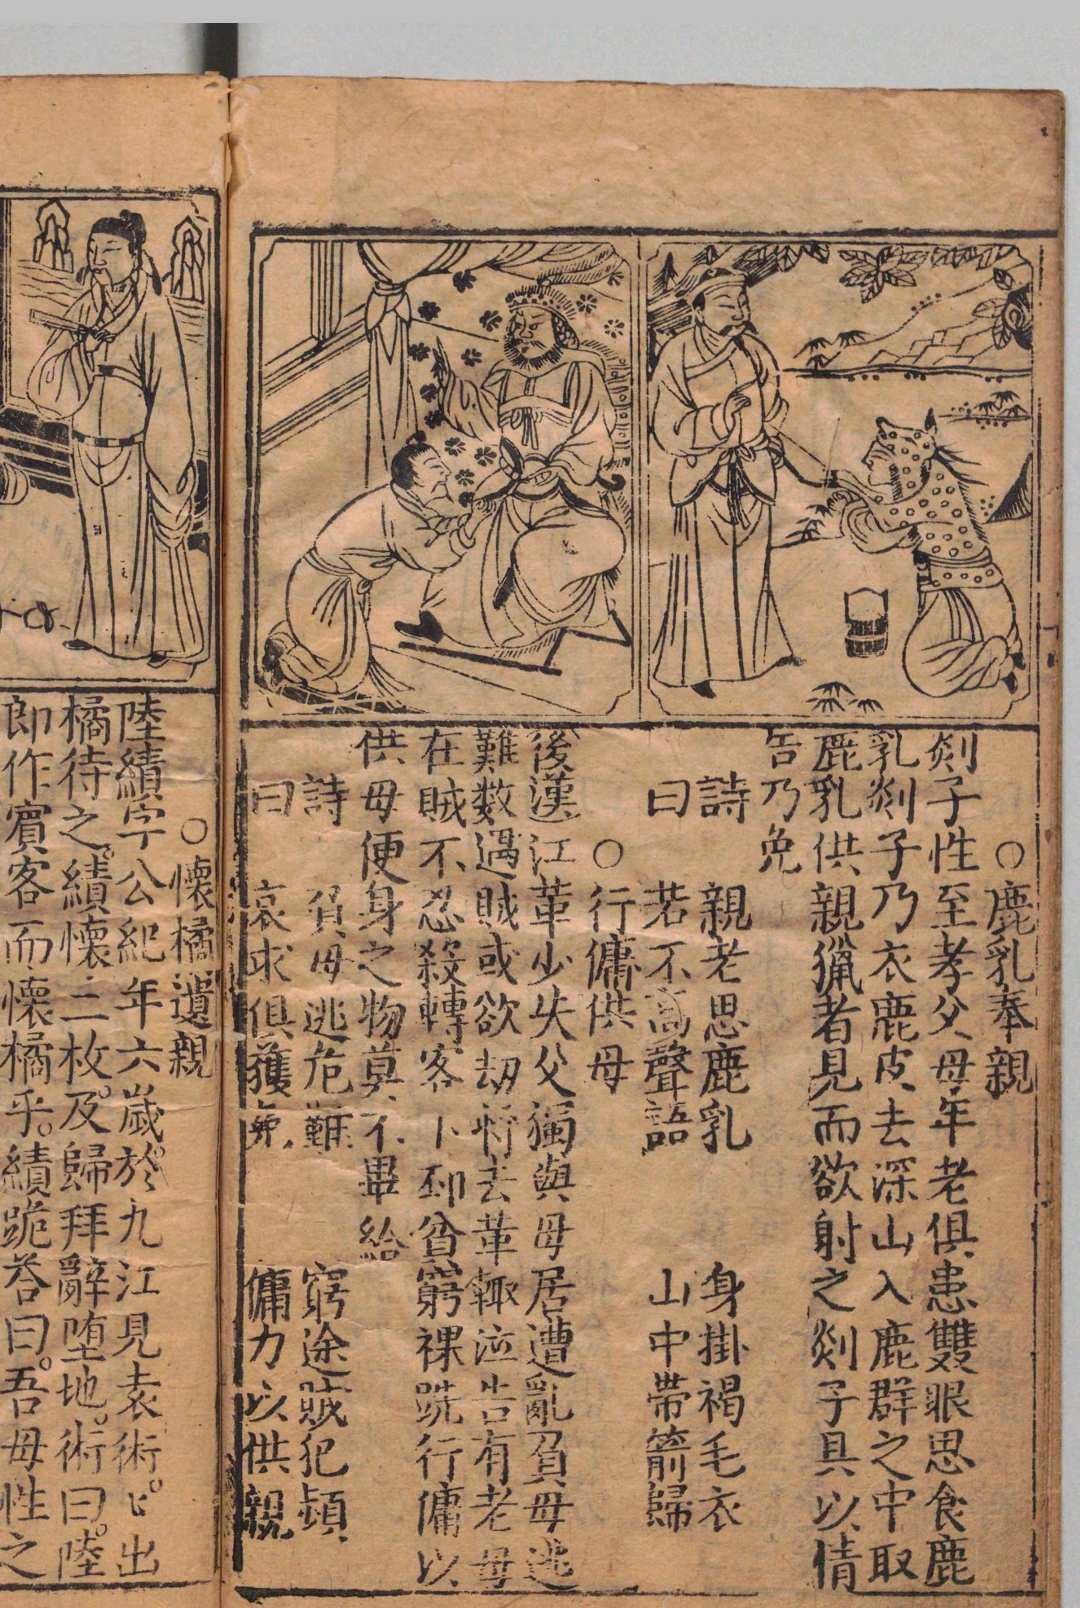 ○鹿乳奉親
剡子性至孝父母年老俱患雙眼思食鹿
乳剡子乃衣鹿皮去深山入鹿群之中取
鹿乳供親獵者見而欲射之剡子具以情
告乃免
詩 親老思鹿乳 身掛褐毛衣
曰 若不高聲語 山中帶箭歸
○行傭供母
後漢江革少失父獨與母居遭亂負母逃
難数遇賊或欲劫將去革輙泣告有老母
在賊不忍殺轉客下邳貧窮裸跣行傭以
供母便身之物莫不畢給
詩 負母逃危難 窮途賊犯頻
曰 哀求俱獲免 傭力以供親
○懷橘遺親
陸績字公紀年六歲。於九江見袁術。匕出
橘待之。績懷二枚。及歸拜辭堕地。術曰。陸
郎作賓客而懷橘乎。績跪荅曰。吾母性之